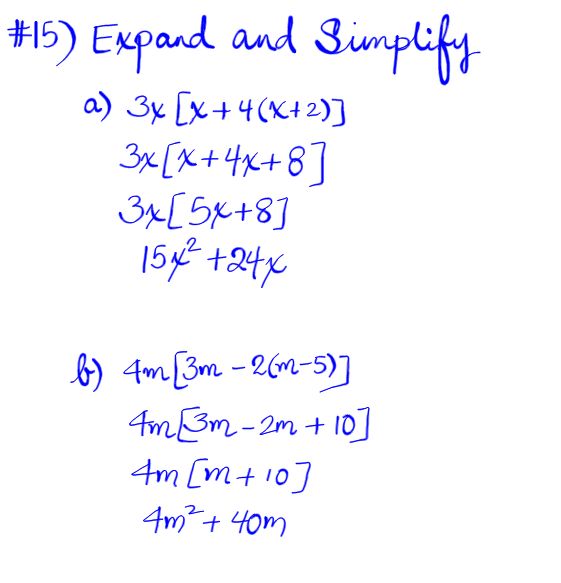 #15) Expand and Simplify
a) 3x [x + 4(x+2)]
3x[x+4x+8]
3x[5x+8]
15x² +24x
b) 4m[3m - 2(m-5)]
4m[3m - 2m + 10]
4m [m + 10]
4m² + 40m